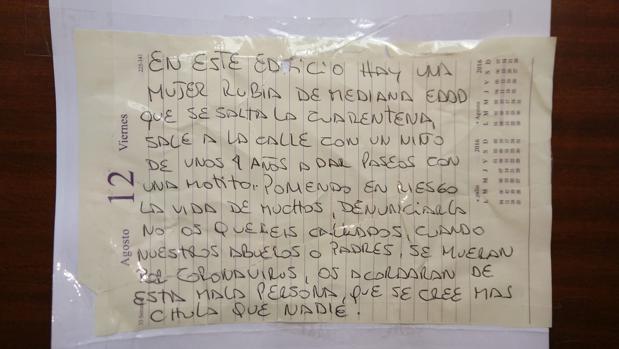 EN ESTE EDIFICIO HAY UNA
MUJER RUBIA DE MEDIANA EDAD
QUE SE SALTA LA CUARENTENA,
SALE A LA CALLE CON UN NIÑO
DE UNOS 4 AÑOS A DAR PASEOS CON
UNA MOTITO. POMENDO EN RIESGO
LA VIDA DE MUCHOS, DENUNCIARLA
NO OS QUEREIS CALLADOS, CUANDO
NUESTROS ABUELOS O PADRES, SE MUERAN
POR CORONAVIRUS, OS ACORDARAN DE
ESTA MALA PERSONA, QUE SE CREE MAS
CHULA QUE NADIE.
Agosto 12 Viernes
225-141
• Agosto 2016
L M M J V S D
• Julio 2016
L M M J V S D